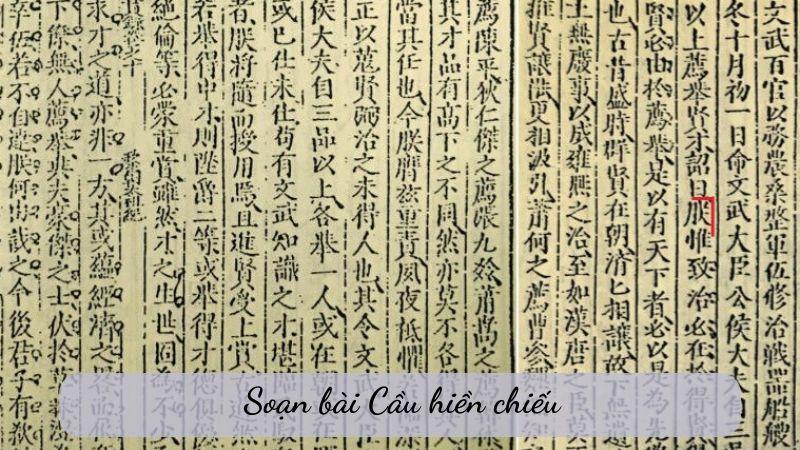 文武百官以務農桑整軍伍修治戰器船艘
冬十月初一日命文武大臣公侯大夫自三品
以上薦舉賢才詔曰朕惟致治必在於得賢得
賢必由於薦舉是以有天下者必以是為先
也古昔盛時群賢在朝濟匕相讓故下無遺
土無廢事以成雍熙之治至如漢唐之臣莫
推賢讓能更相汲引蕭何之薦曹參
薦陳平狄仁傑之薦張九齡蕭嵩之
其才品有高下之不同然亦莫不各
當其任也今朕膺茲重責夙夜祗懼
正以蒐賢弼治之未得人也其令文武
侯大夫自三品以上各舉一人或在朝
或已仕未仕苟有文武知識之才堪臨
者朕將隨而授用焉且進賢受上賞
若舉得中才則陞爵二等或舉得才德俱優
絕倫等必蒙重賞雖然才之生世固為不少
求才之道亦非一方其或蘊經濟之畧而
下僚無人薦舉與夫豪傑之士伏於草萊
卒伍若不自達朕何由哉之今後君子有
Soạn bài Cầu hiền chiếu